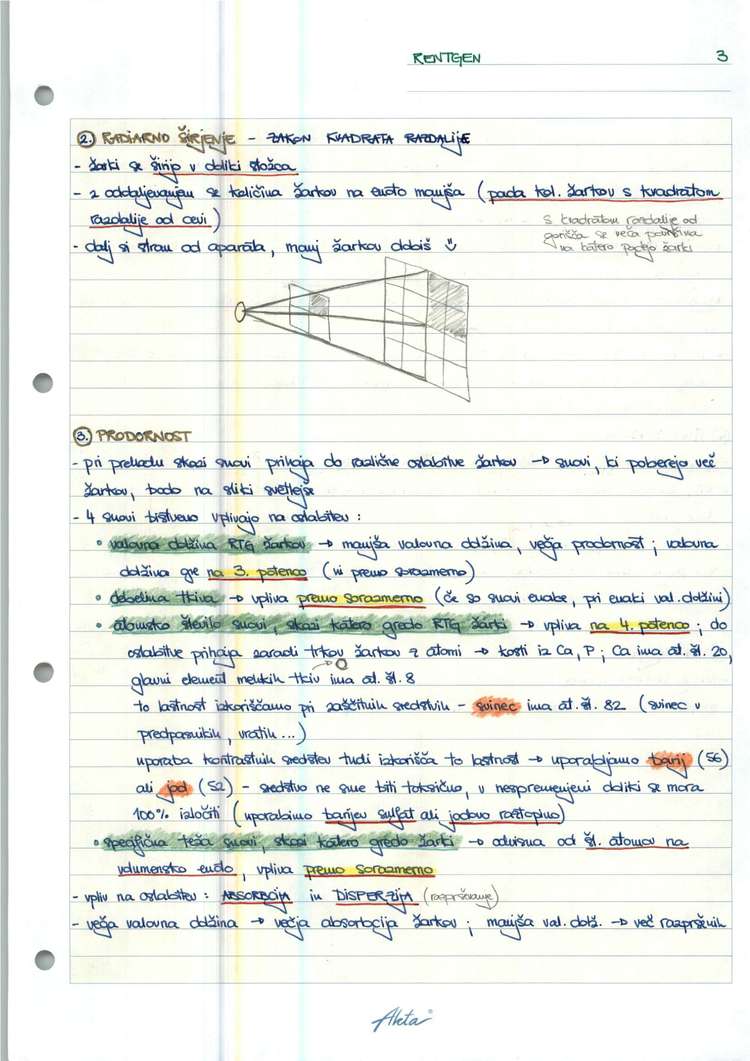 RENTGEN 3
2. RADIARNO ŠIRJENJE - ZAKON KVADRATA RAZDALIJE
- žarki se širijo v obliki stožca
- z oddaljevanjem se količina žarkov na enoto manjša (pada kol. žarkov s kvadratom
razdalije od cevi)
- dalj si stran od aparata, manj žarkov dobiš ☺
s kvadratom razdalije od
gorišča se veča površina
na katero padejo žarki
3. PRODORNOST
- pri prehodu skozi snovi prihaja do različne oslabitve žarkov → snovi, ki poberejo več
žarkov, bodo na sliki svetlejše
- 4 snovi bistveno vplivajo na oslabitev :
• valovna dolžina RTG žarkov → manjša valovna dolžina, večja prodornost ; valovna
dolžina gre na 3. potenco (ni premo sorazmerno)
• debelina tkiva → vpliva premo sorazmerno (če so snovi enake, pri enaki val. dolžini)
• atomsko število snovi, skozi katero gredo RTG žarki → vpliva na 4. potenco ; do
oslabitve prihaja zaradi trkov žarkov z atomi → kosti iz Ca, P ; Ca ima at. št. 20,
glavni element mehkih tkiv ima at. št. 8
→ O
to lastnost izkoriščamo pri zaščitnih sredstvih - svinec ima at. št. 82 (svinec v
predpasnikih, vratih ...)
uporaba kontrastnih sredstev tudi izkorišča to lastnost → uporabljamo barij (56)
ali jod (52) - sredstvo ne sme biti toksično, v nespremenjeni obliki se mora
100% izločiti (uporabimo barijev sulfat ali jodovo raztopino)
• specifična teža snovi, skozi katero gredo žarki → odvisna od št. atomov na
volumensko enoto, vpliva premo sorazmerno
- vpliv na oslabitev : ABSORBCIJA in DISPERZIJA (razprševanje)
- večja valovna dolžina → večja absorbcija žarkov ; manjša val. dolž. → več razpršenih
Akta